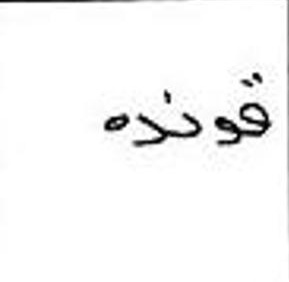 قونده